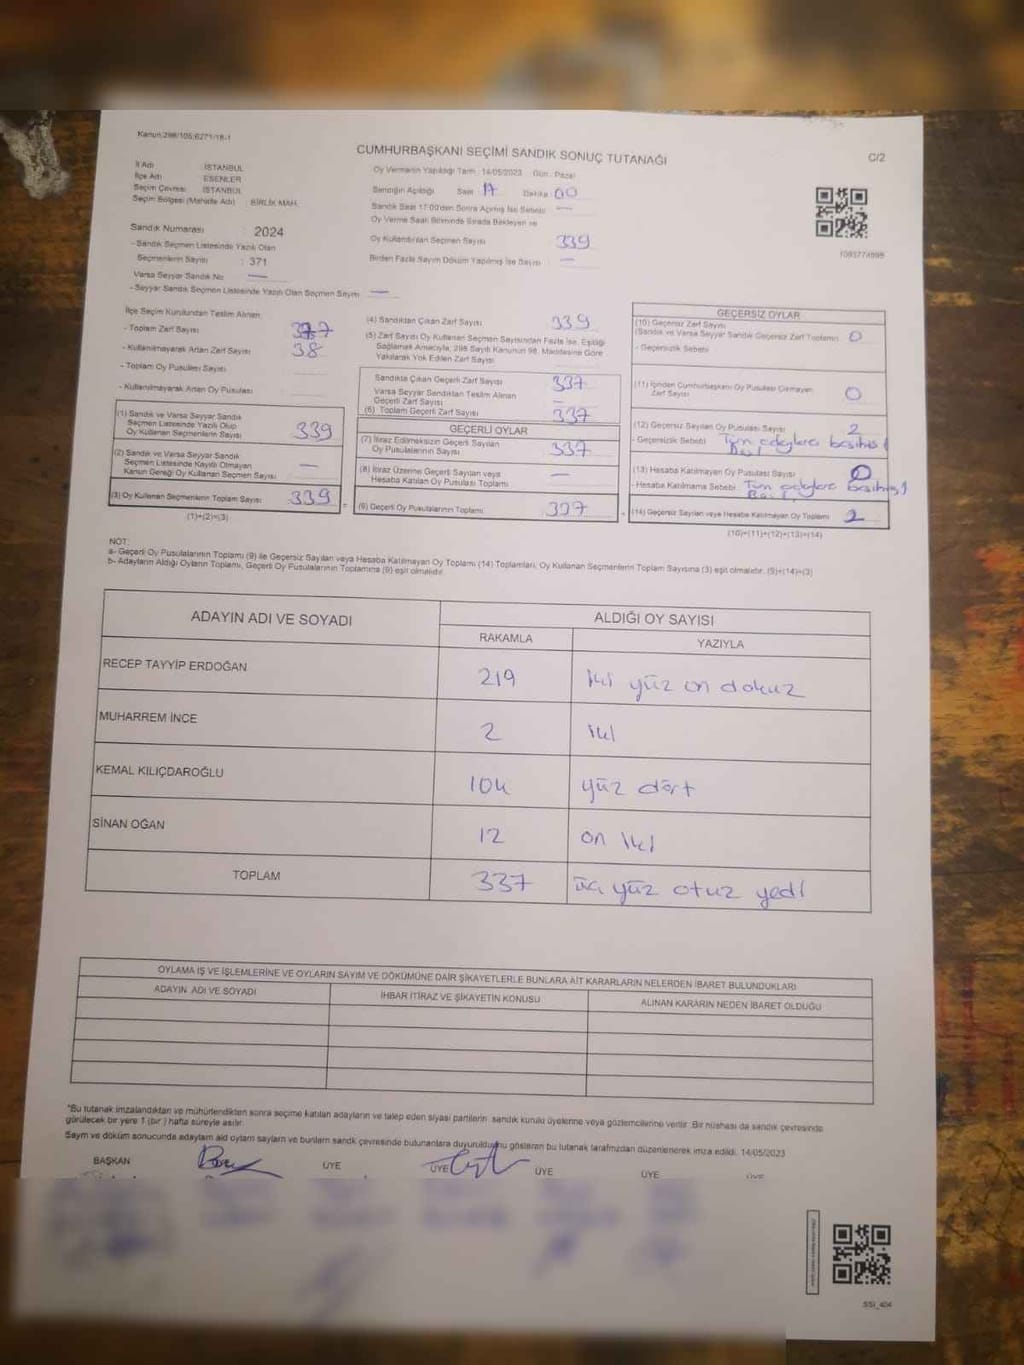 Kanun:298/105;6271/18-1
CUMHURBAŞKANI SEÇİMİ SANDIK SONUÇ TUTANAĞI
C/2
İl Adı İSTANBUL
İlçe Adı ESENLER
Seçim Çevresi İSTANBUL
Seçim Bölgesi (Mahalle Adı) BİRLİK MAH.
Sandık Numarası : 2024
- Sandık Seçmen Listesinde Yazılı Olan
Seçmenlerin Sayısı : 371
Varsa Seyyar Sandık No —
- Seyyar Sandık Seçmen Listesinde Yazılı Olan Seçmen Sayısı —
Oy Vermenin Yapıldığı Tarih : 14/05/2023 Gün : Pazar
Sandığın Açıldığı Saat 17 Dakika 00
Sandık Saat 17:00'den Sonra Açılmış İse Sebebi —
Oy Verme Saati Bitiminde Sırada Bekleyen ve
Oy Kullandırılan Seçmen Sayısı 339
Birden Fazla Sayım Döküm Yapılmış İse Sayısı —
1093774999
İlçe Seçim Kurulundan Teslim Alınan
- Toplam Zarf Sayısı
- Kullanılmayarak Artan Zarf Sayısı 38
- Toplam Oy Pusulası Sayısı
- Kullanılmayarak Artan Oy Pusulası
(1) Sandık ve Varsa Seyyar Sandık
Seçmen Listesinde Yazılı Olup
Oy Kullanan Seçmenlerin Sayısı 339
(2) Sandık ve Varsa Seyyar Sandık
Seçmen Listesinde Kayıtlı Olmayan
Kanun Gereği Oy Kullanan Seçmen Sayısı —
(3) Oy Kullanan Seçmenlerin Toplam Sayısı 339
(1)+(2)=(3)
(4) Sandıktan Çıkan Zarf Sayısı 339
(5) Zarf Sayısı Oy Kullanan Seçmen Sayısından Fazla İse, Eşitliği
Sağlamak Amacıyla, 298 Sayılı Kanunun 98. Maddesine Göre
Yakılarak Yok Edilen Zarf Sayısı
Sandıkta Çıkan Geçerli Zarf Sayısı 337
Varsa Seyyar Sandıktan Teslim Alınan
Geçerli Zarf Sayısı —
(6) Toplam Geçerli Zarf Sayısı 337
GEÇERLİ OYLAR
(7) İtiraz Edilmeksizin Geçerli Sayılan
Oy Pusulalarının Sayısı 337
(8) İtiraz Üzerine Geçerli Sayılan veya
Hesaba Katılan Oy Pusulası Toplamı —
(9) Geçerli Oy Pusulalarının Toplamı 337
GEÇERSİZ OYLAR
(10) Geçersiz Zarf Sayısı
(Sandık ve Varsa Seyyar Sandık Geçersiz Zarf Toplamı) 0
- Geçersizlik Sebebi
(11) İçinden Cumhurbaşkanı Oy Pusulası Çıkmayan
Zarf Sayısı 0
(12) Geçersiz Sayılan Oy Pusulası Sayısı 2
- Geçersizlik Sebebi Tüm adaylara
(13) Hesaba Katılmayan Oy Pusulası Sayısı 0
- Hesaba Katılmama Sebebi Tüm adaylara
(14) Geçersiz Sayılan veya Hesaba Katılmayan Oy Toplamı 2
(10)+(11)+(12)+(13)=(14)
NOT:
a- Geçerli Oy Pusulalarının Toplamı (9) ile Geçersiz Sayılan veya Hesaba Katılmayan Oy Toplamı (14) Toplamları, Oy Kullanan Seçmenlerin Toplam Sayısına (3) eşit olmalıdır. (9)+(14)=(3)
b- Adayların Aldığı Oyların Toplamı, Geçerli Oy Pusulalarının Toplamına (9) eşit olmalıdır.
ADAYIN ADI VE SOYADI ALDIĞI OY SAYISI
RAKAMLA YAZIYLA
RECEP TAYYİP ERDOĞAN 219 iki yüz on dokuz
MUHARREM İNCE 2 iki
KEMAL KILIÇDAROĞLU 104 yüz dört
SİNAN OĞAN 12 on iki
TOPLAM 337 üç yüz otuz yedi
OYLAMA İŞ VE İŞLEMLERİNE VE OYLARIN SAYIM VE DÖKÜMÜNE DAİR ŞİKAYETLERLE BUNLARA AİT KARARLARIN NELERDEN İBARET BULUNDUKLARI
ADAYIN ADI VE SOYADI İHBAR İTİRAZ VE ŞİKAYETİN KONUSU ALINAN KARARIN NEDEN İBARET OLDUĞU
*Bu tutanak imzalandıktan ve mühürlendikten sonra seçime katılan adayların ve talep eden siyasi partilerin sandık kurulu üyelerine veya gözlemcilerine verilir. Bir nüshası da sandık çevresinde
görülecek bir yere 1 (bir) hafta süreyle asılır.
Sayım ve döküm sonucunda adayların aldığı oyların sayıları ve bunların sandık çevresinde bulunanlara duyurulduğunu gösteren bu tutanak tarafımızdan düzenlenerek imza edildi. 14/05/2023
BAŞKAN ÜYE ÜYE ÜYE ÜYE ÜYE
SSİ_404